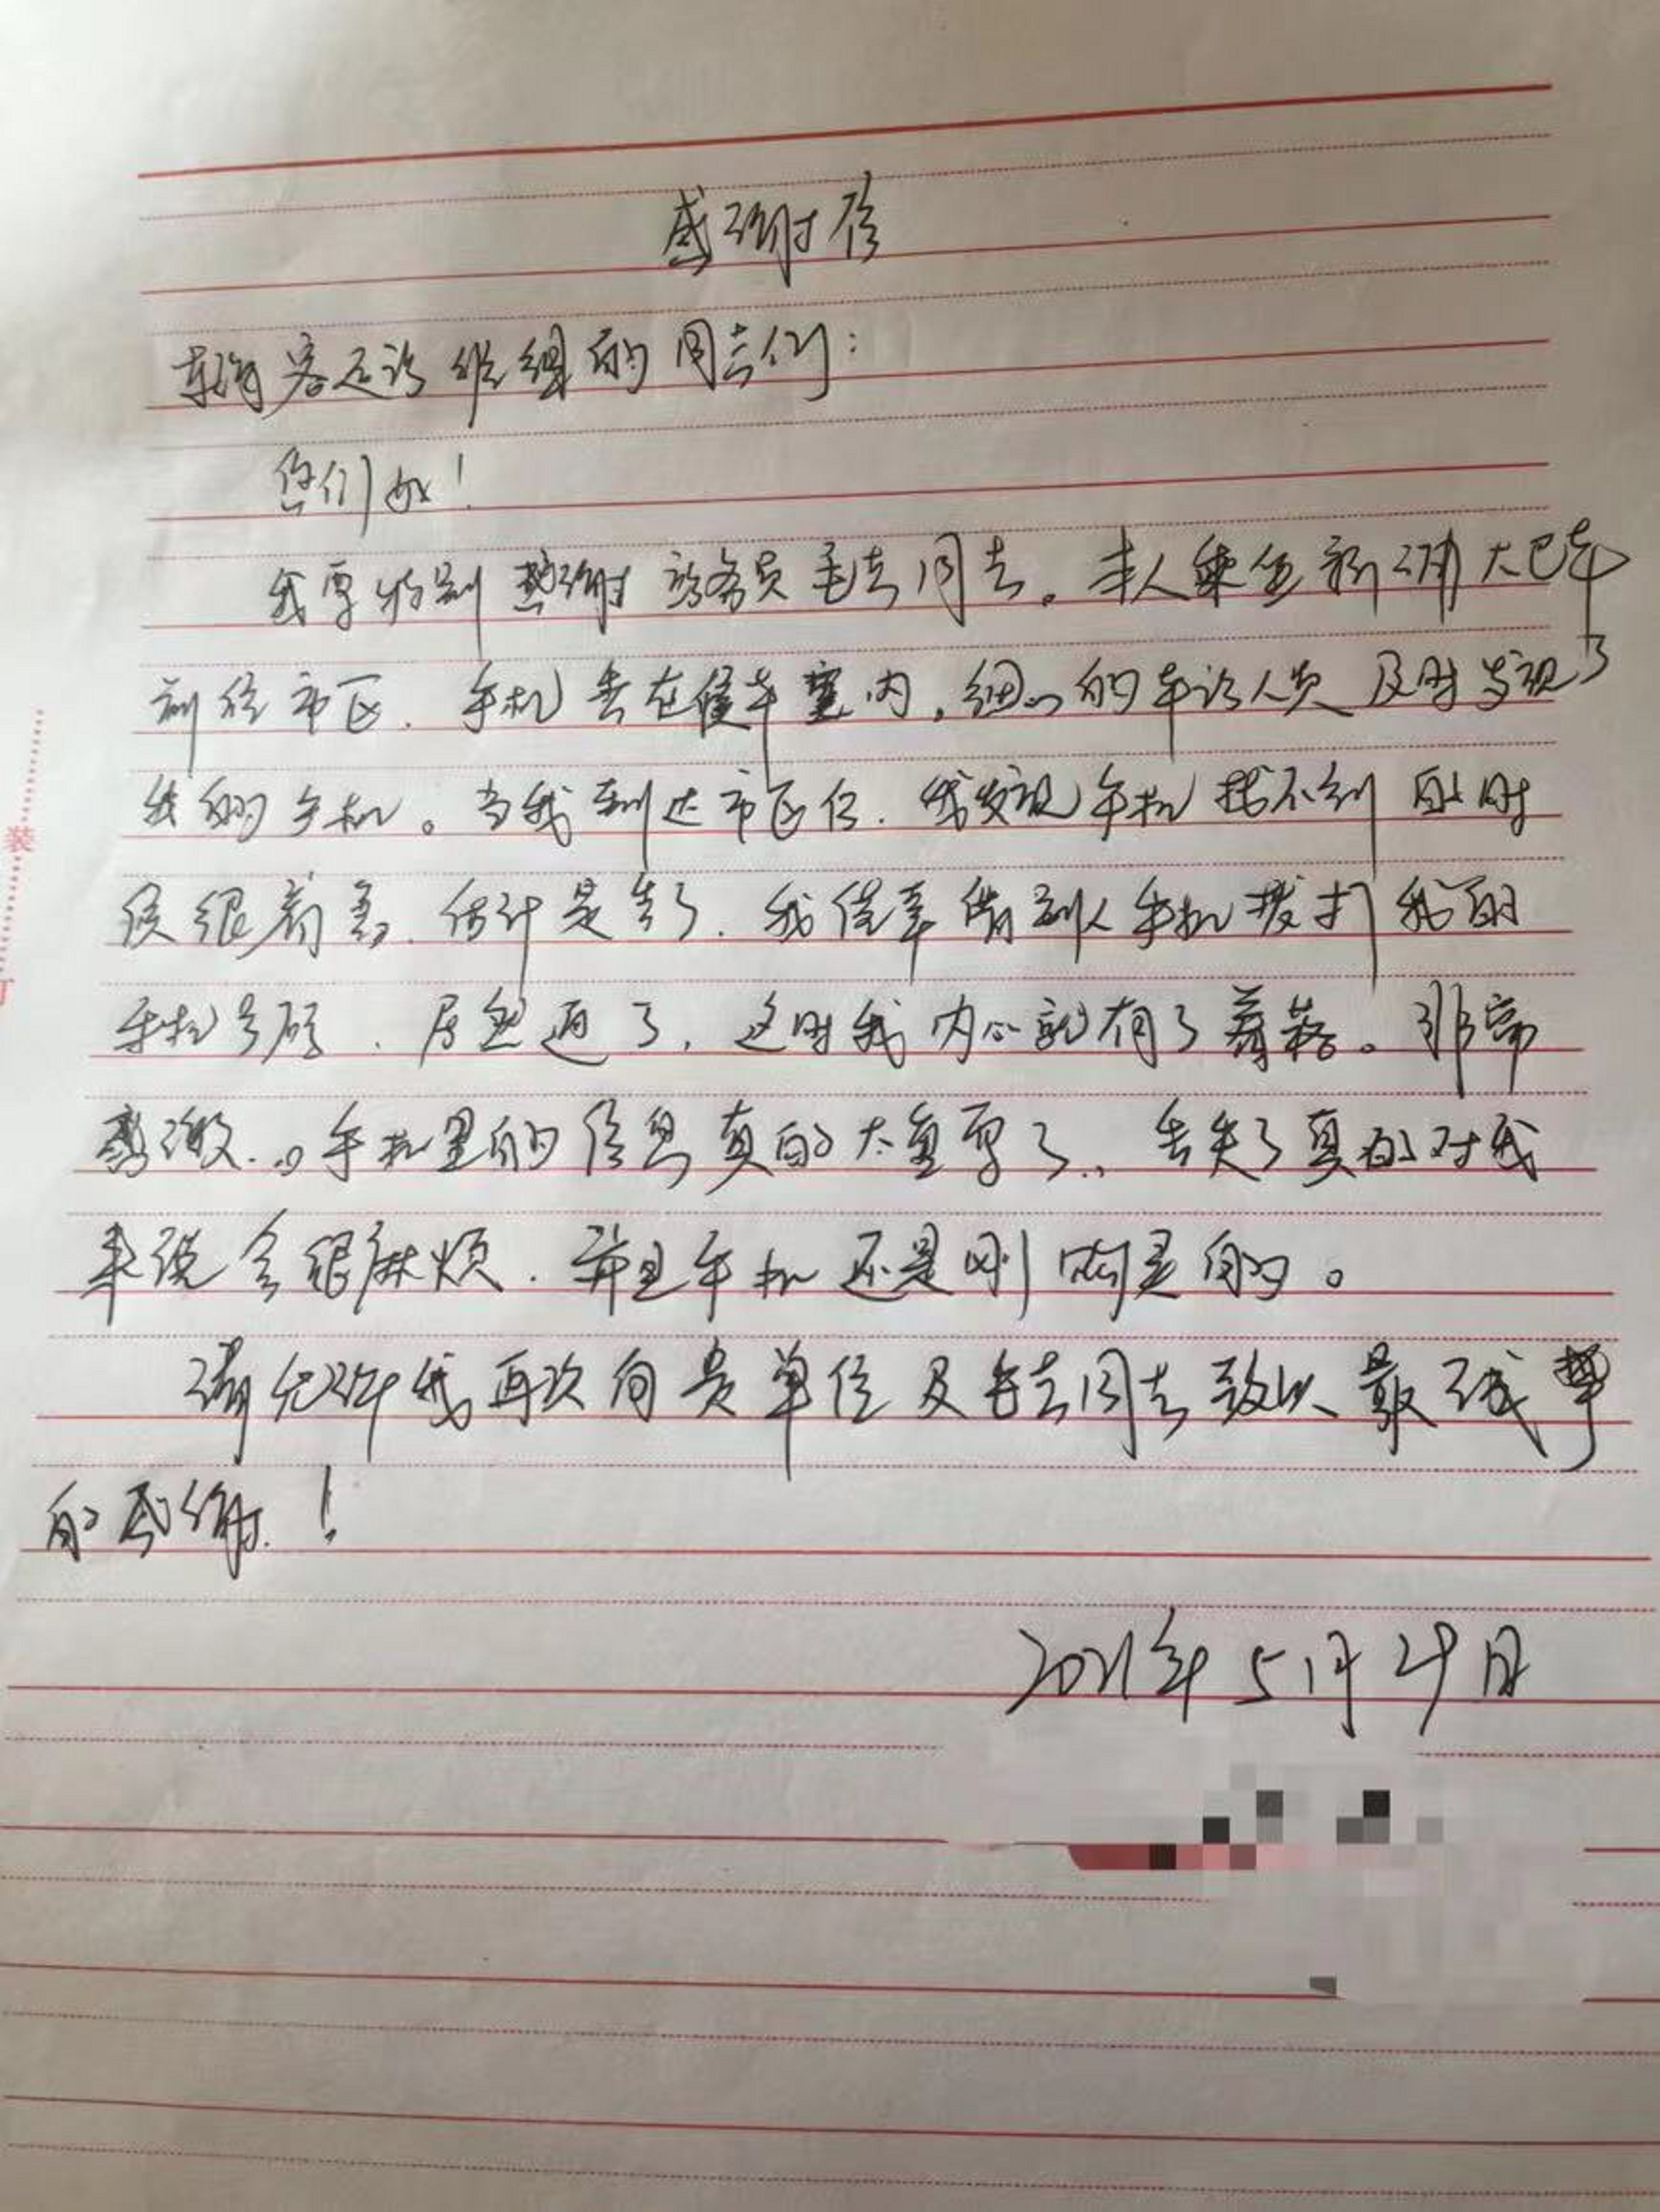 感谢信
客运站 组的同志们：
您们好！
我要特别感谢站务员毛 同志。本人乘坐 大巴车
前往市区，手机丢在候车室内，细心的车站人员及时发现了
我的手机。当我到达市区后，我发现手机找不到的时
候很着急，估计是丢了，我侥幸借别人手机拨打我的
手机号码，居然通了，这时我内心就有了着落。非常
感激..。手机里的信息真的太重要了，丢失了真的对我
来说会很麻烦，并且手机还是刚购买的。
请允许我再次向贵单位及毛 同志致以最诚挚
的感谢！
2021年5月29日
装
订